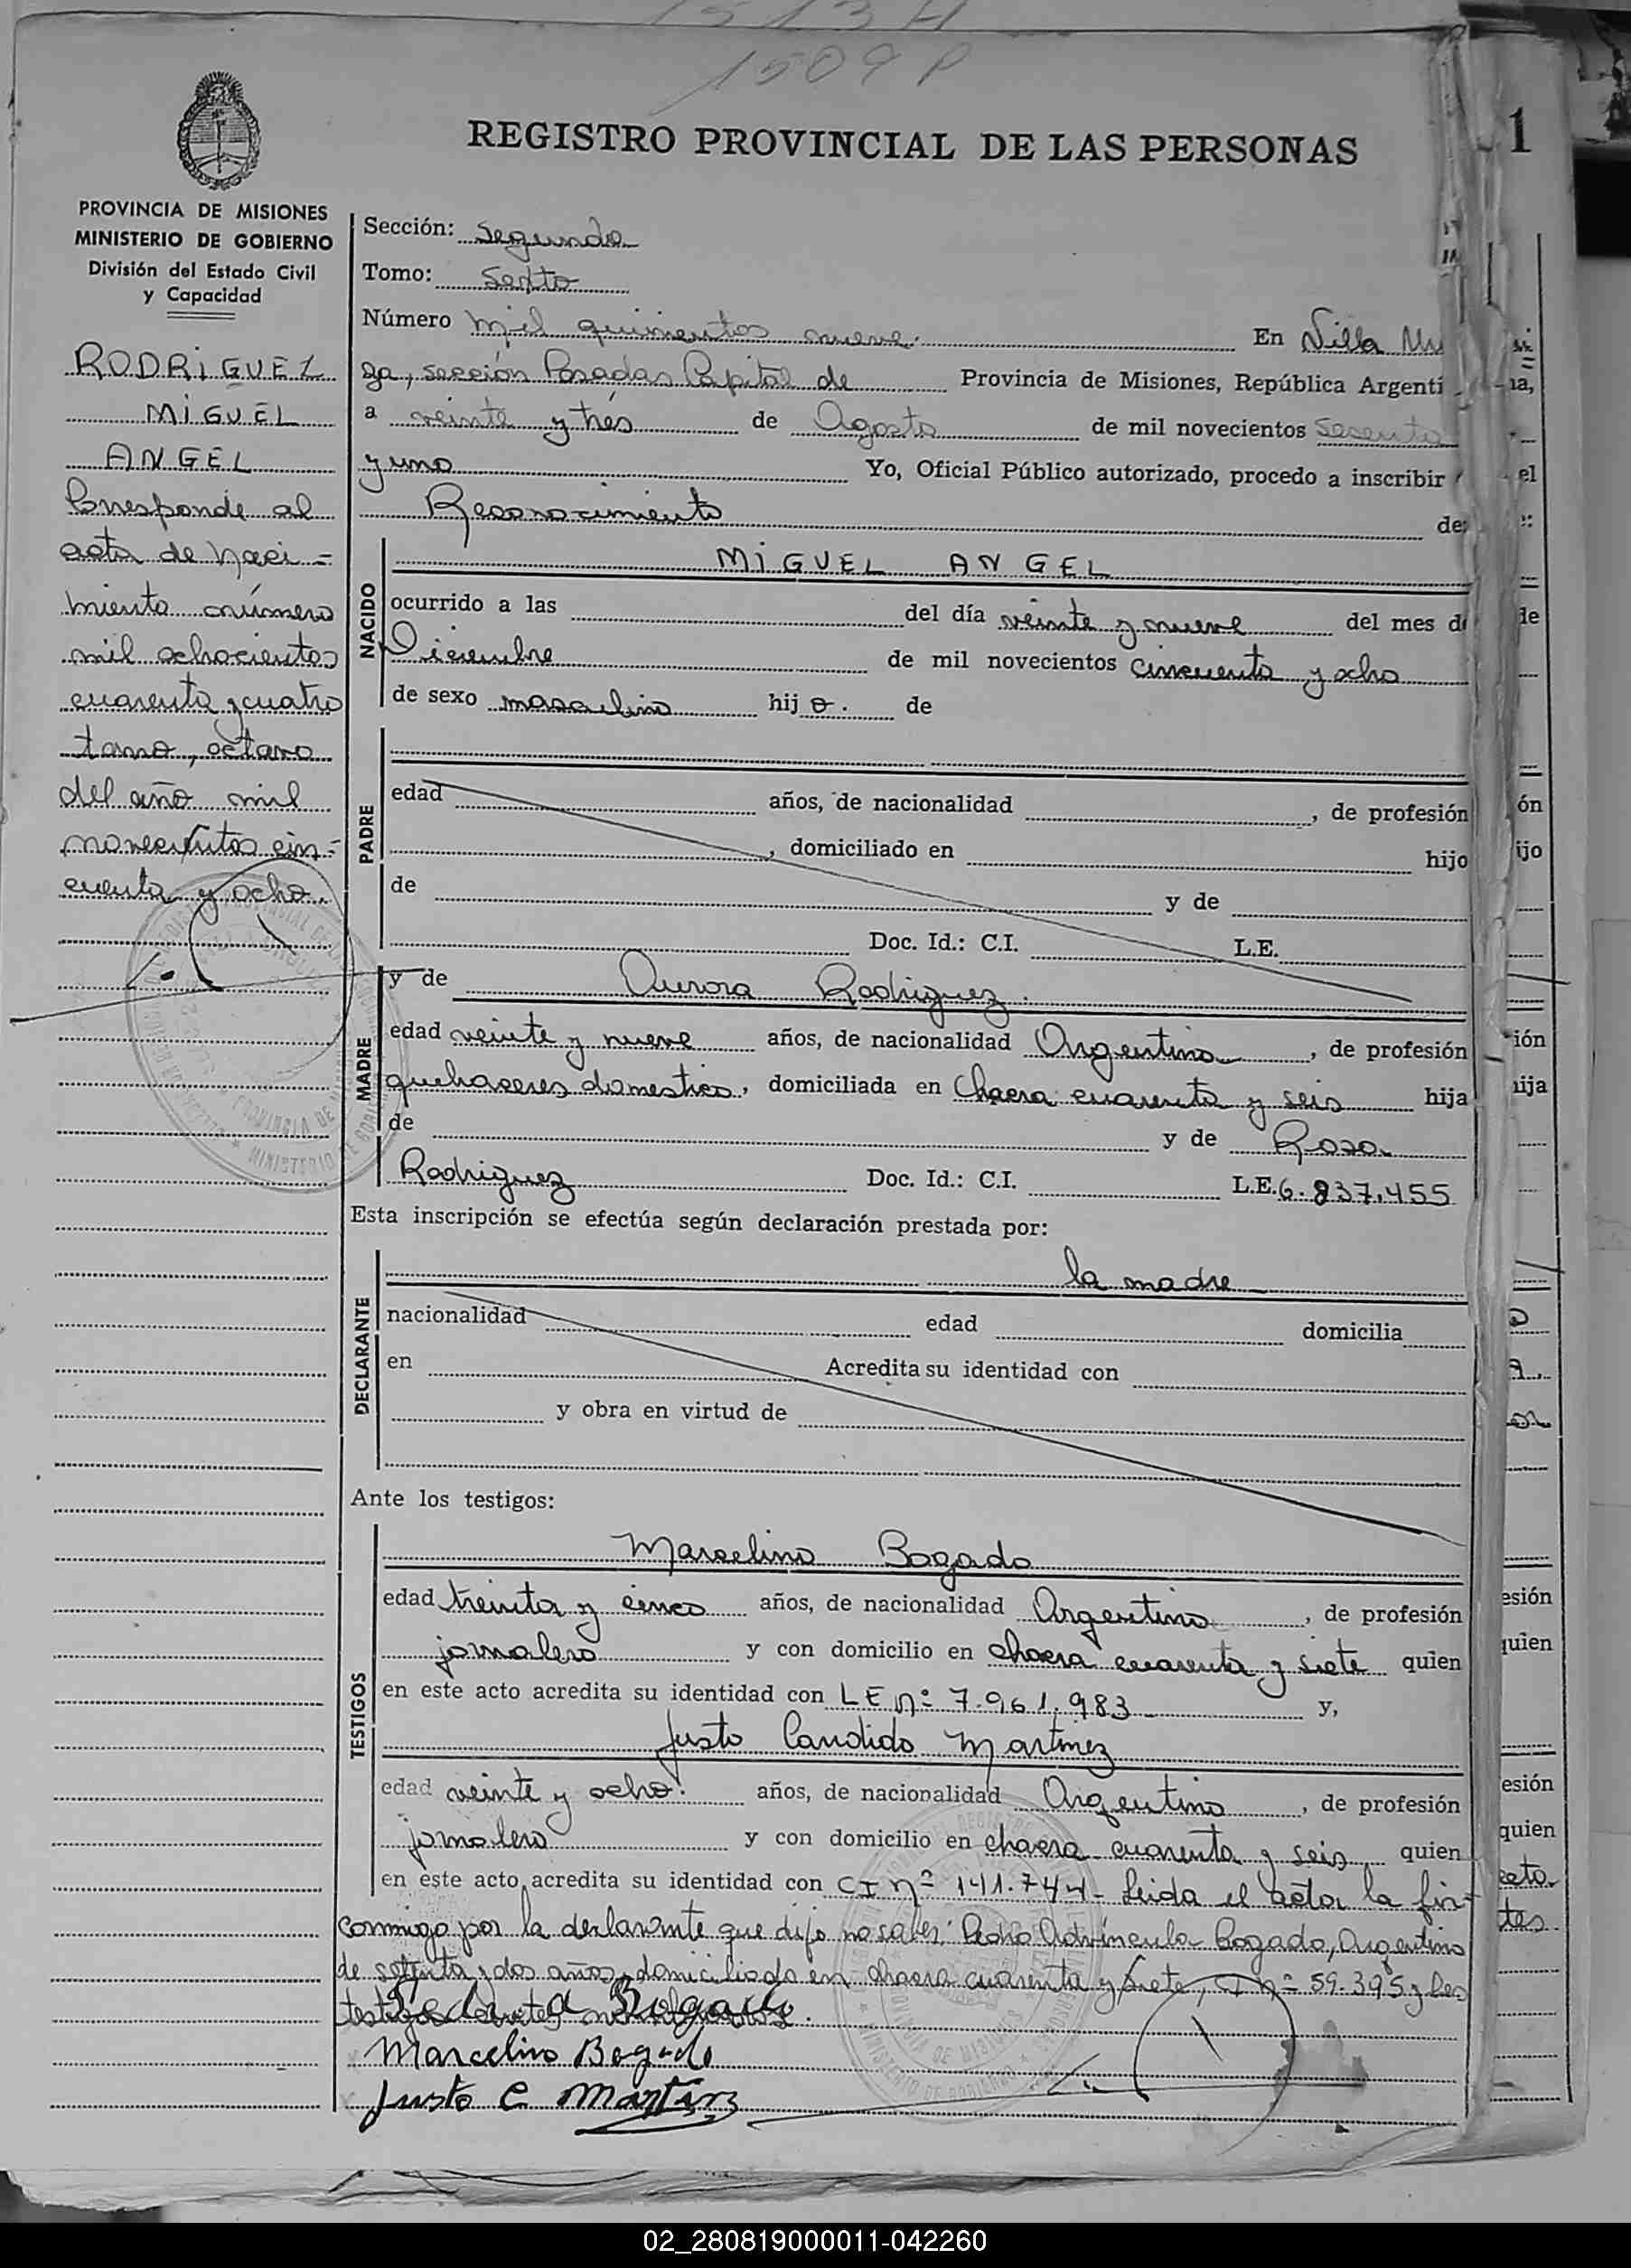 1509 P
REGISTRO PROVINCIAL DE LAS PERSONAS
1
PROVINCIA DE MISIONES
MINISTERIO DE GOBIERNO
División del Estado Civil
y Capacidad
RODRIGUEZ
MIGUEL
ANGEL
Corresponde al
acta de naci=
miento número
mil ochocientos
cuarenta y cuatro
tomo, octavo
del año mil
novecientos cin=
cuenta y ocho.
Sección: Segunda
Tomo: Sexto
Número mil quinientos nueve. En Villa Ur
ga, sección Posadas Capital de Provincia de Misiones, República Argenti
a veinte y tres de Agosto de mil novecientos sesenta
y uno Yo, Oficial Público autorizado, procedo a inscribir
Reconocimiento de:
NACIDO
MIGUEL ANGEL
ocurrido a las del día veinte y nueve del mes d
Diciembre de mil novecientos cincuenta y ocho
de sexo masculino hijo. de
PADRE
edad años, de nacionalidad , de profesión
, domiciliado en hijo
de y de
Doc. Id.: C.I. L.E.
MADRE
y de Aurora Rodriguez.
edad veinte y nueve años, de nacionalidad Argentina , de profesión
quehaceres domestico, domiciliada en Chacra cuarenta y seis hija
de y de Rosa
Rodriguez Doc. Id.: C.I. L.E. 6.837.455
Esta inscripción se efectúa según declaración prestada por:
DECLARANTE
la madre
nacionalidad edad domicilia
en Acredita su identidad con
y obra en virtud de
Ante los testigos:
TESTIGOS
Marcelino Bogado
edad treinta y cinco años, de nacionalidad Argentino , de profesión
jornalero y con domicilio en chacra cuarenta y siete quien
en este acto acredita su identidad con LE nº 7.961.983 y,
Justo Candido Martinez
edad veinte y ocho. años, de nacionalidad Argentino , de profesión
jornalero y con domicilio en chacra cuarenta y seis quien
en este acto acredita su identidad con CI nº 141.744- Leida el acta la fir
conmigo por la declarante que dijo no saber: Pedro Advincula Bogado, Argentino
de setenta y dos años, domiciliado en chacra cuarenta y siete, CI nº 59.395 y los
testigos antes mencionados.
Pedro A Bogado
Marcelino Bogado
Justo C Martinez
02_280819000011-042260